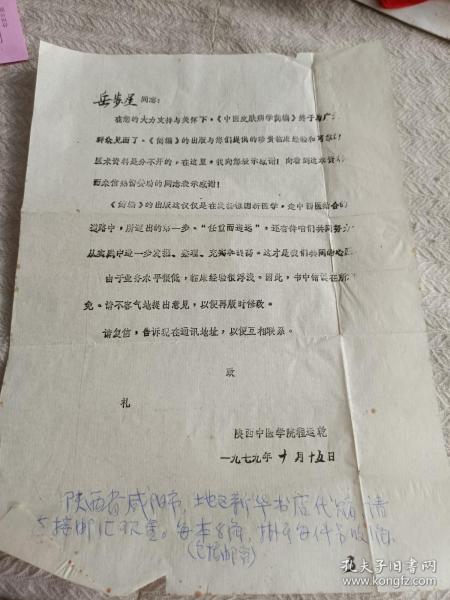 同志：
在您的大力支持与关怀下，《中医皮肤病学简编》终于与广
群众见面了。《简编》的出版与您们提供的珍贵临床经验和
医术资料是分不开的，在这里，我向您表示感谢！向看到这本资
而来信热情赞助的同志表示感谢！
《简编》的出版这仅仅是在发掘祖国新医学，走中西医结合
道路中，所迈出的第一步。“任重而道远”，还有待咱们共同努力
从实践中进一步发掘、整理、充实和提高。这才是我们共同的心
由于业务水平很低，临床经验很浮浅。因此，书中错误在所
免。请不客气地提出意见，以便再版时修改。
请复信，告诉现在通讯地址，以便互相联系。
致
礼
陕西中医学院程运乾
一九七九年十月十五日
陕西省咸阳市，地区新华书店代销 请
直接邮汇 每本8角，挂号每件另收
(包括邮寄)
孔夫子旧书网